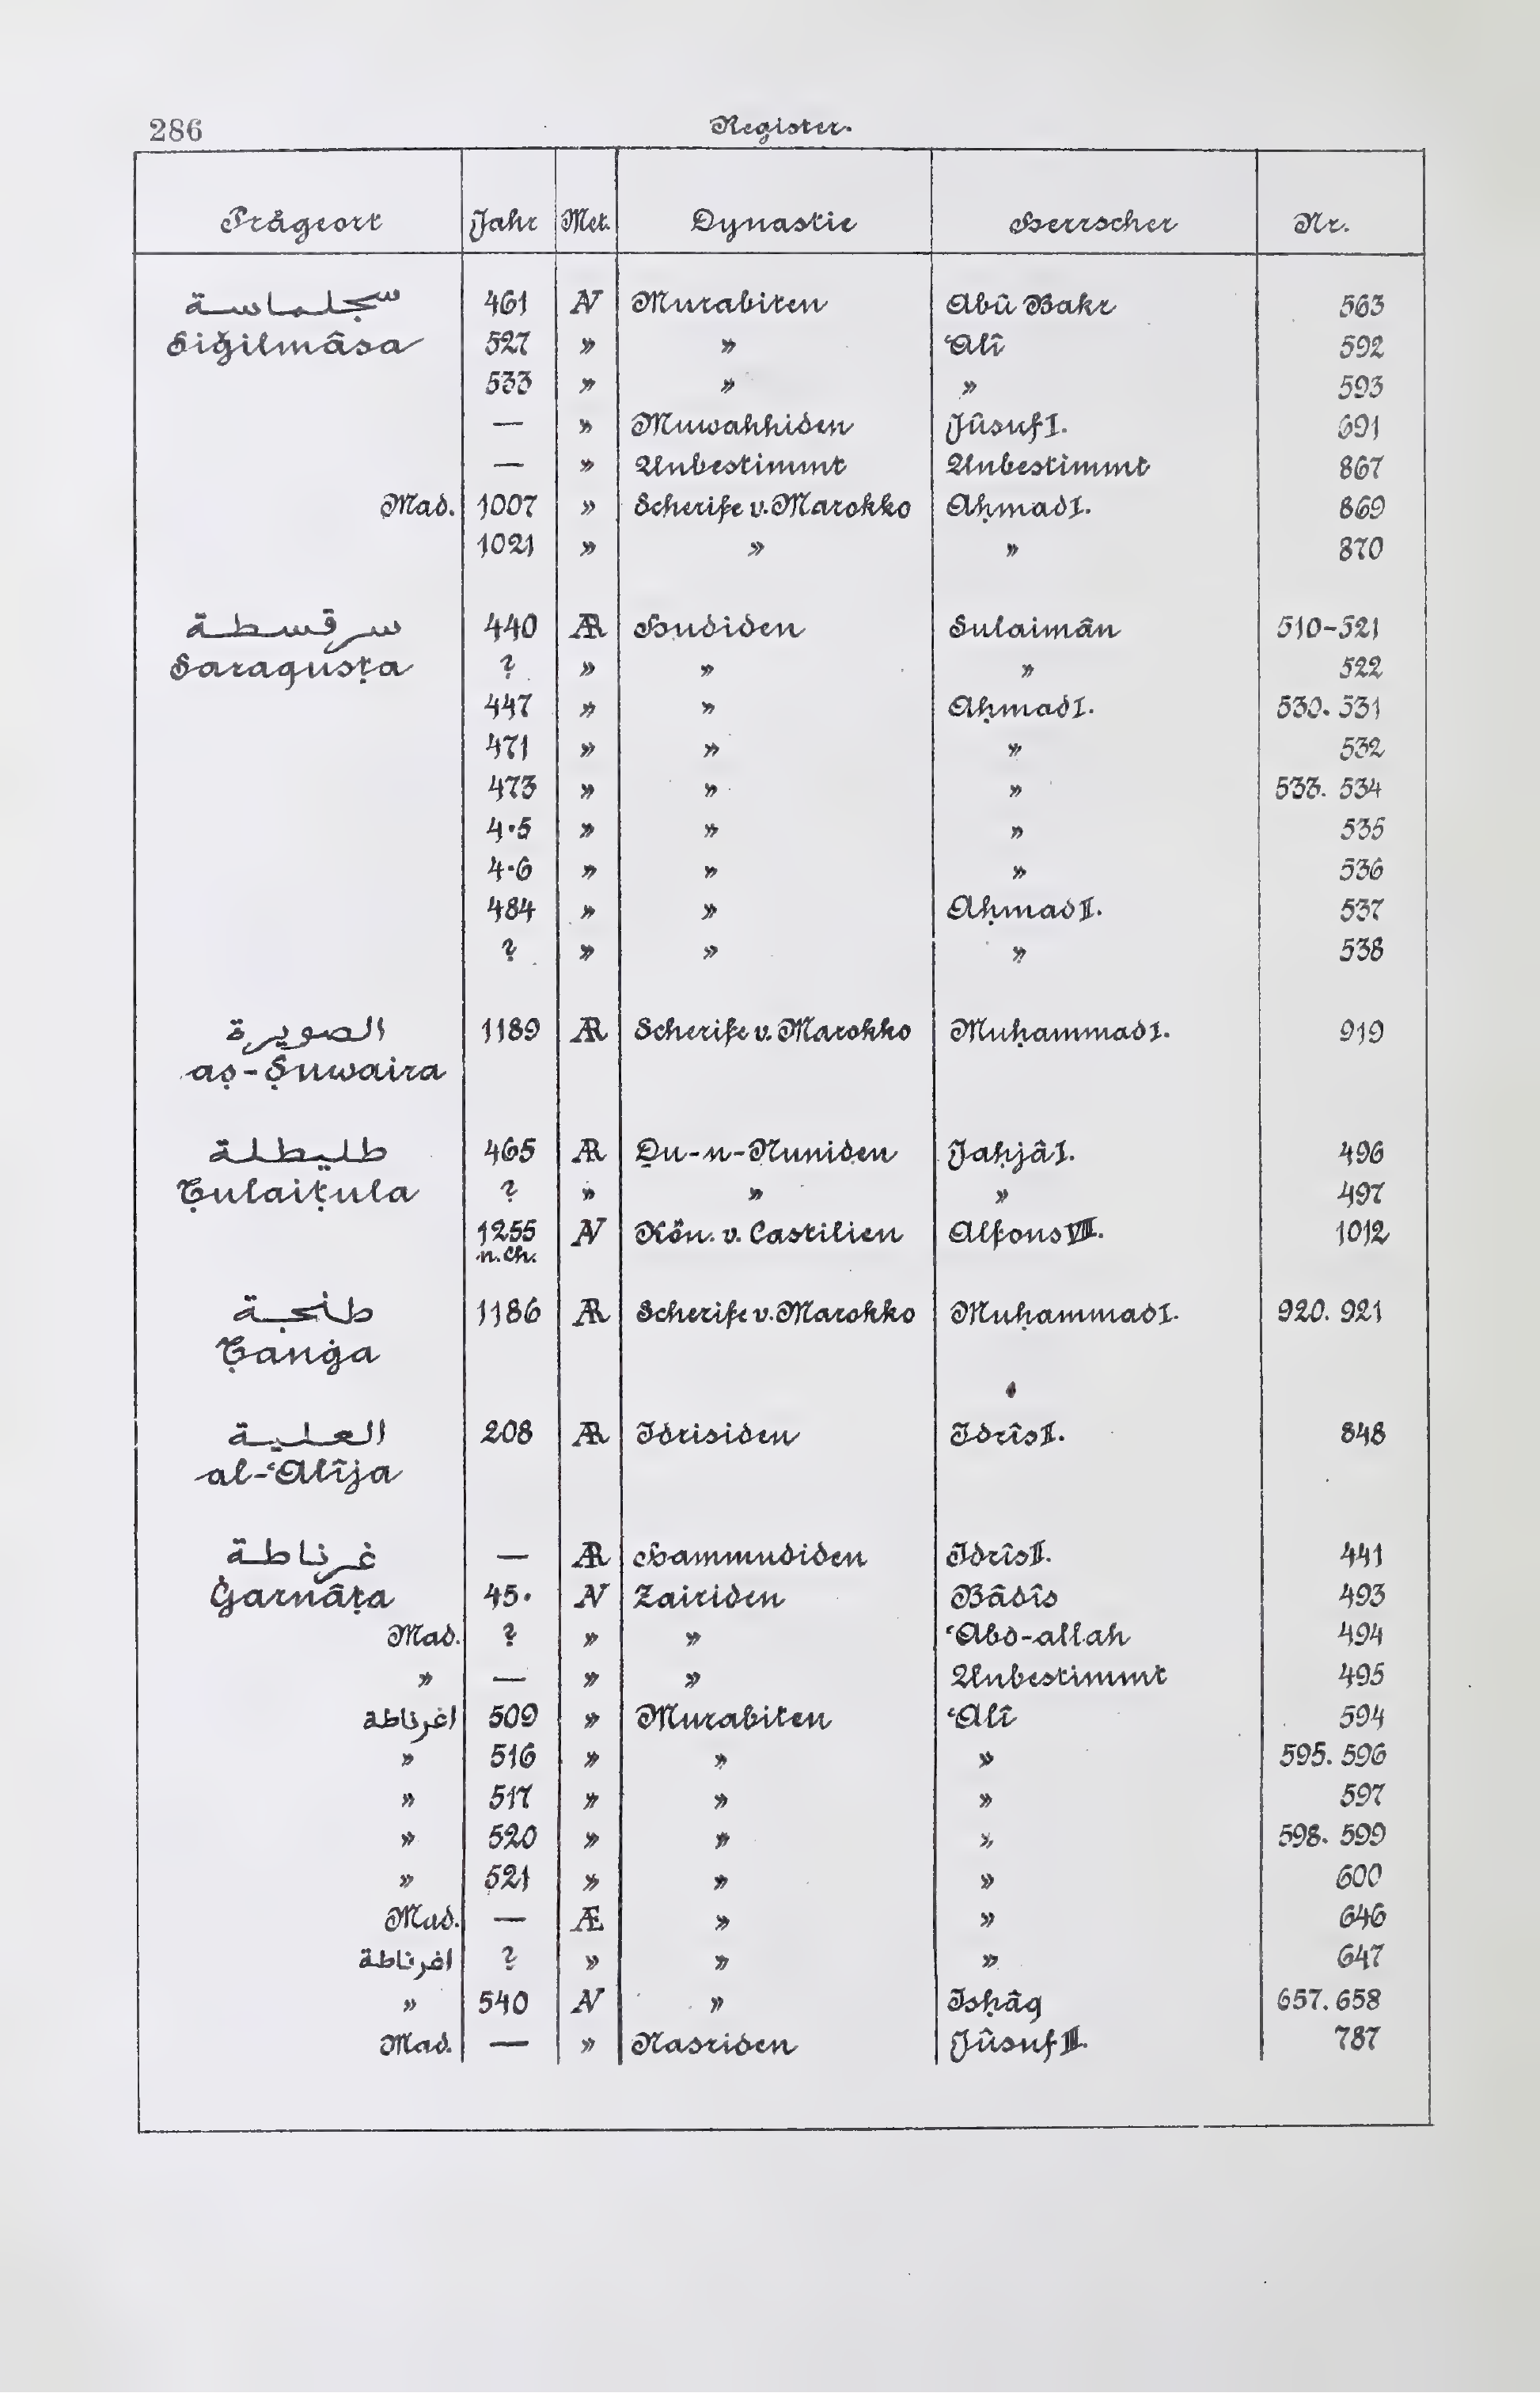 286 Register.
Prägeort Jahr Met. Dynastie Herrscher Nr.
سجلماسة 461 N Murabiten Abû Bakr 563
Siǧilmâsa 527 » » ʿAlî 592
533 » » » 593
— » Muwahhiden Jûsuf I. 691
— » Unbestimmt Unbestimmt 867
Mad. 1007 » Scherife v. Marokko Aḥmad I. 869
1021 » » » 870
سرقسطة 440 AR Hudiden Sulaimân 510-521
Saraqusṭa ? » » » 522
447 » » Aḥmad I. 530. 531
471 » » » 532
473 » » » 533. 534
4·5 » » » 535
4·6 » » » 536
484 » » Aḥmad II. 537
? » » » 538
الصويرة 1189 AR Scherife v. Marokko Muḥammad I. 919
aṣ-Ṣuwaira
طليطلة 465 AR Ḏu-n-Nuniden Jaḥjâ I. 496
Ṭulaiṭula ? » » » 497
1255 N Kön. v. Castilien Alfons VIII. 1012
n. Ch.
طنجة 1186 AR Scherife v. Marokko Muḥammad I. 920. 921
Ṭanġa
العلية 208 AR Idrisiden Idrîs II. 848
al-ʿAlîja
غرناطة — AR Hammudiden Idrîs II. 441
Ġarnâṭa 45· N Zairiden Bâdîs 493
Mad. ? » » ʿAbd-allah 494
» — » » Unbestimmt 495
اغرناطة 509 » Murabiten ʿAlî 594
» 516 » » » 595. 596
» 517 » » » 597
» 520 » » » 598. 599
» 521 » » » 600
Mad. — Æ » » 646
اغرناطة ? » » » 647
» 540 N » Isḥâq 657. 658
Mad. — » Nasriden Jûsuf III. 787